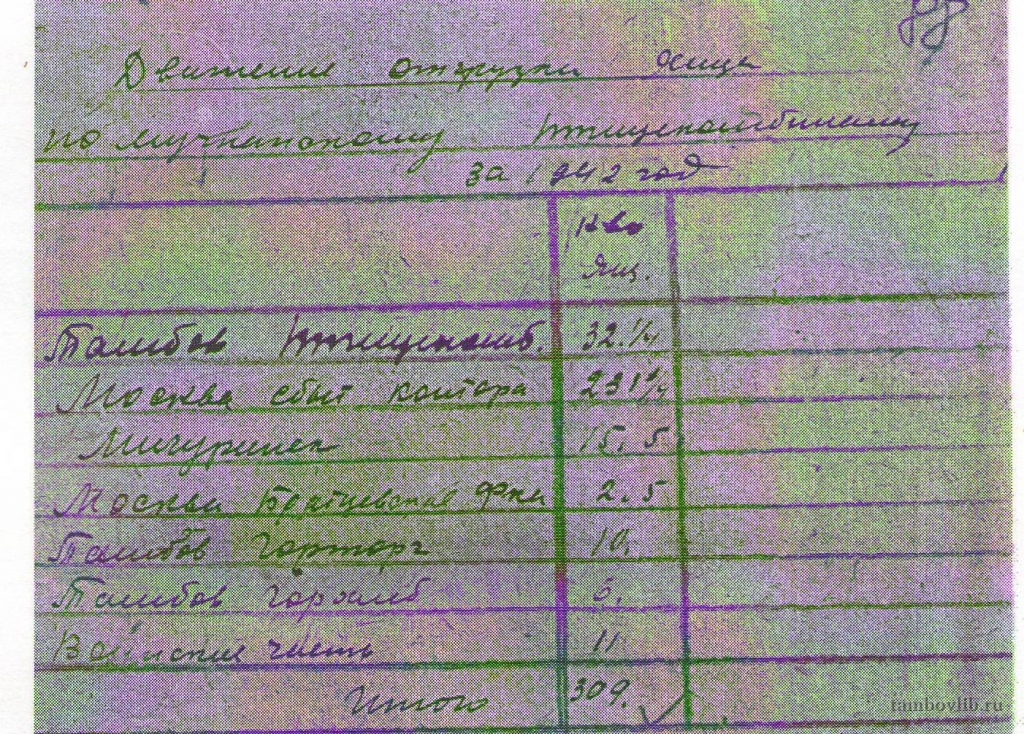 Движение отгрузки яица
по мучкапскому птицекомбинату
за 1942 год
К-во
Ящ.
Тамбов Птицекомб. 32.1/4
Москва сбыт контора 231 1/4
Мичуринск 15.5
Москва Братцевская ф-ка 2.5
Тамбов Горторг 10.
Тамбов горхлеб 6.
Воинские часть 11
Итого 309.
tambovlib.ru